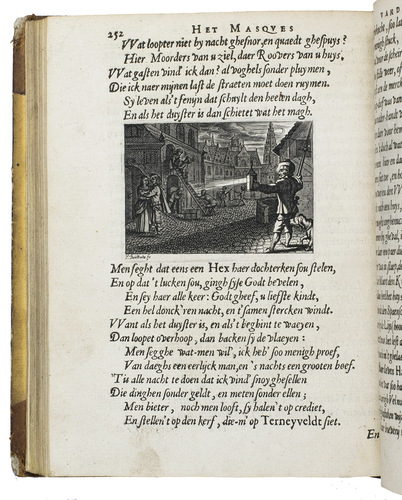 252 HET MASQUES
Wat loopter niet by nacht ghesnor, en quaedt ghespuys?
Hier Moorders van u ziel, daer Roovers van u huys,
Wat gasten vind' ick dan? al voghels sonder pluymen,
Die ick naer mijnen last de straeten moet doen ruymen.
Sy leven als 't fenijn dat schuylt den heelen dagh,
En als het duyster is dan schietet wat het magh.
Men seght dat eens een Hex haer dochterken sou stelen,
En op dat 't lucken sou, gingh sy se Godt bevelen,
En sey haer alle keer: Godt gheef, u liefste kindt,
Een hel donck'ren nacht, en t'samen stercken windt.
Want als het duyster is, en als't beghint te waeyen,
Dan loopet overhoop, dan backen sy de vlaeyen:
Men segghe wat-men wil', ick heb' soo menigh proef,
Van daeghs een eerlijck man, en 's nachts een grooten boef.
'T'is alle nacht te doen dat ick vind' snoy ghesellen
Die dinghen sonder geldt, en meten sonder ellen;
Men bieter, noch men looft, sy halen't op crediet,
En stellen't op den kerf, die-m' op Terneyveldt siet.
En
VAND